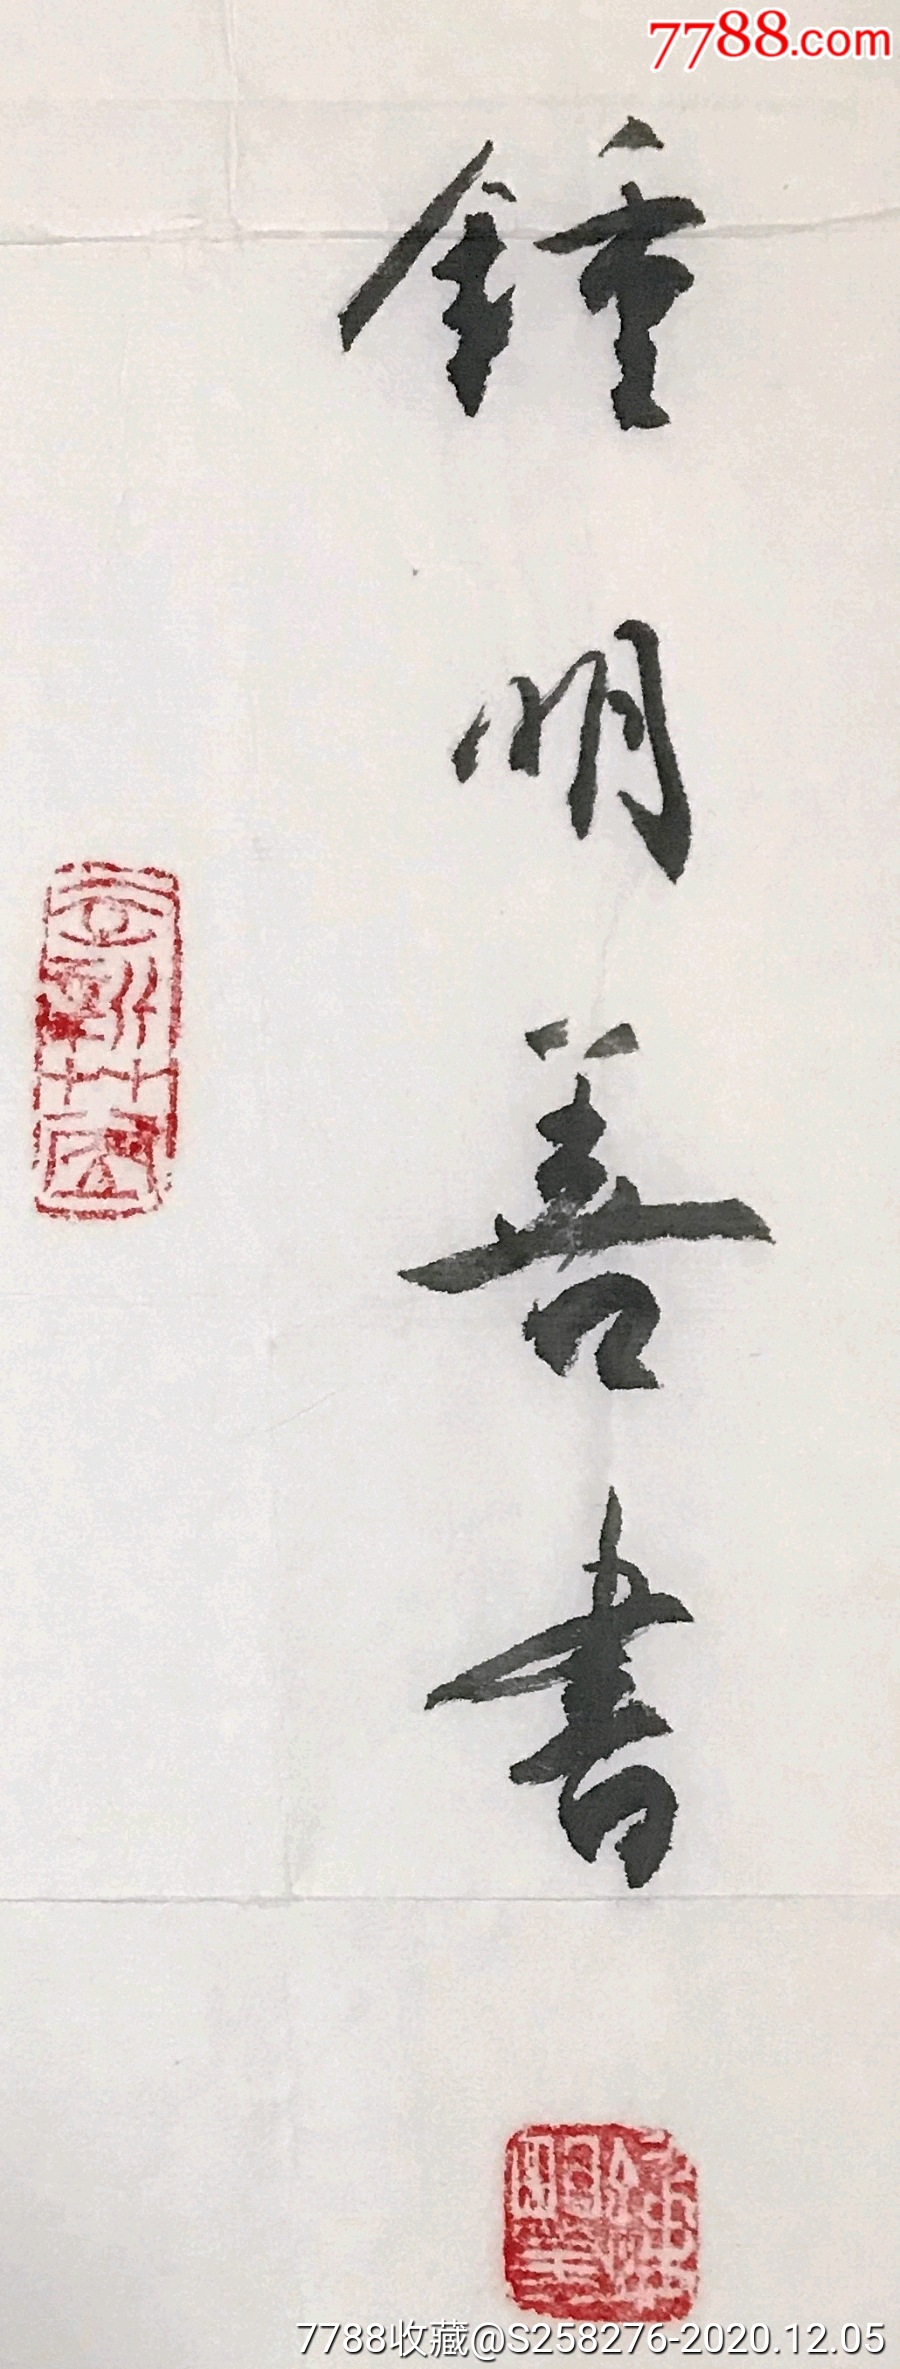 7788.com
鍾明善書
7788收藏@S258276-2020.12.05